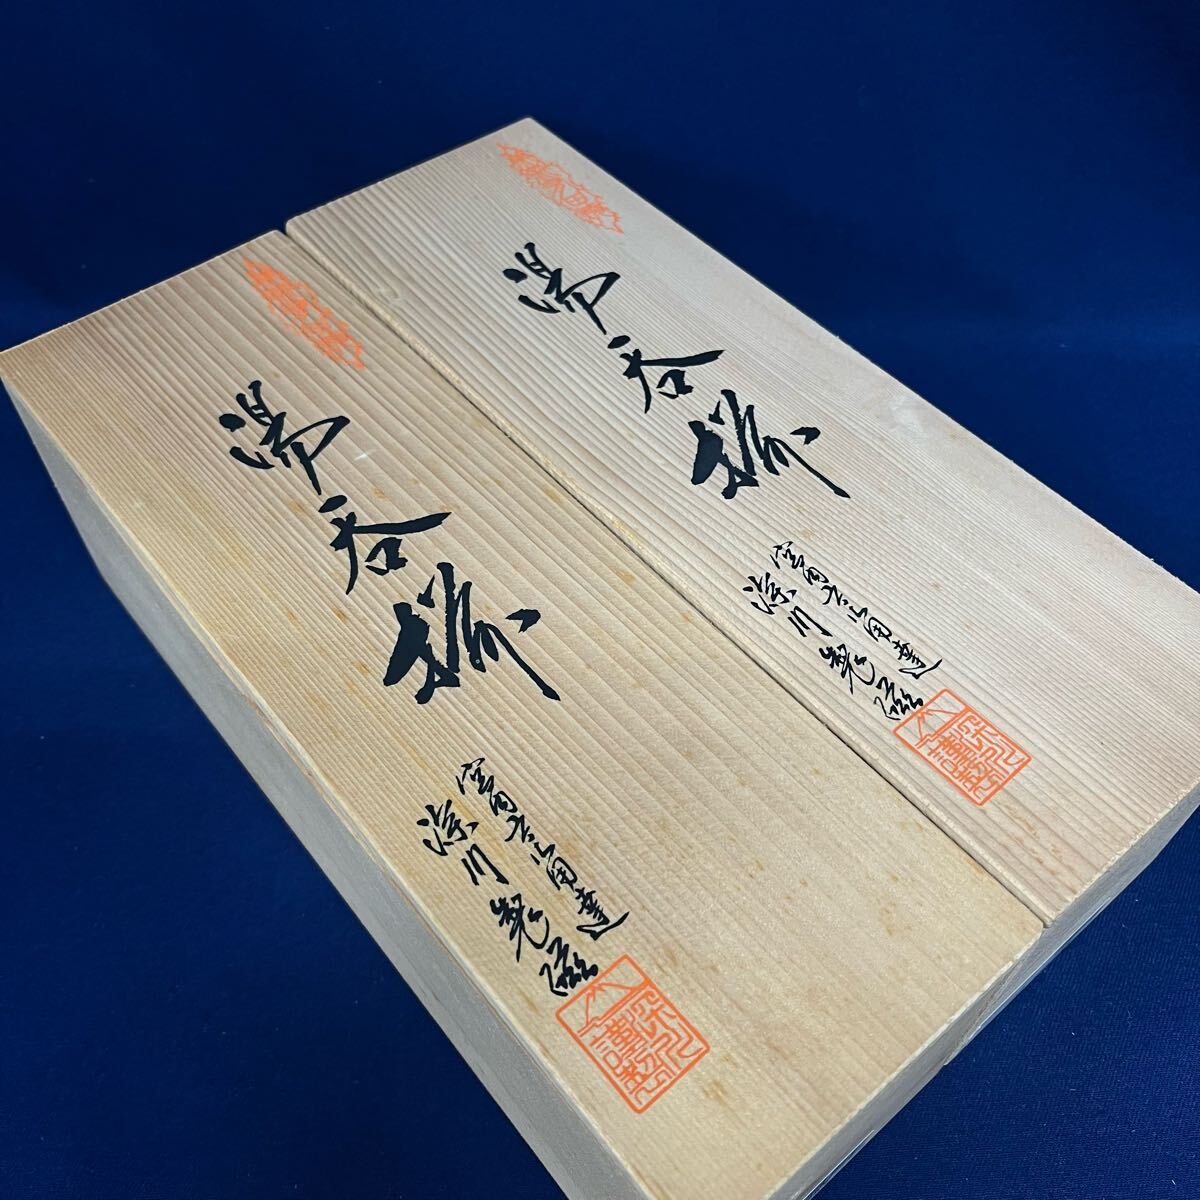 湯呑揃
宮内庁御用達
深川製磁
謹製
湯呑揃
宮内庁御用達
深川製磁
謹製